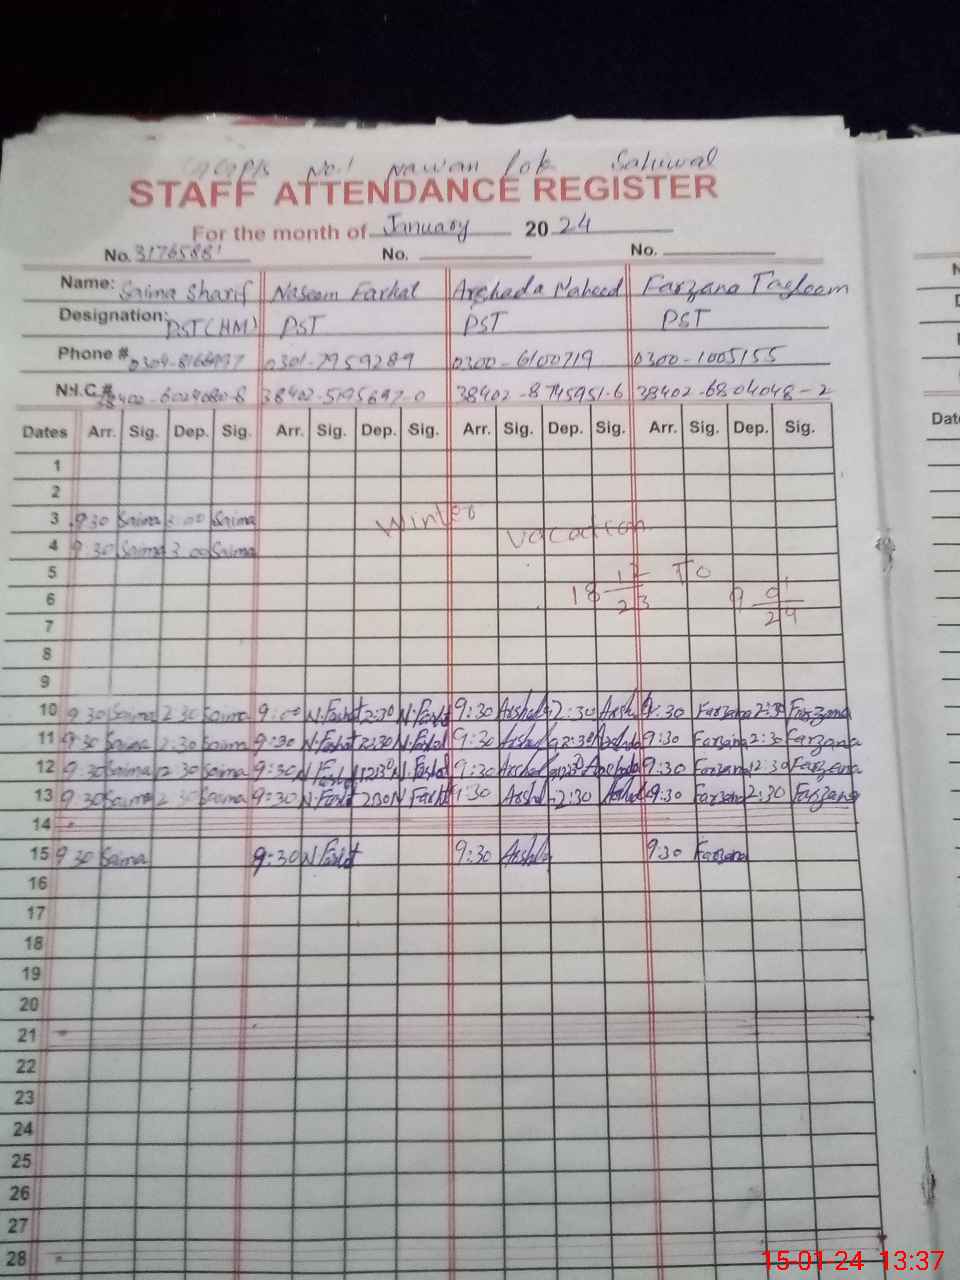 No.1 Nawan lok Sahiwal
STAFF ATTENDANCE REGISTER
For the month of January 2024
No. 3176588 No. No.
Name: Saima Sharif Naseem Farhat Arshada Naheed Farzana Tasleem
Designation: PST (HM) PST PST PST
Phone # 0301-7959289 0300-6100719 0300-1005155
N.I.C.# 38402-5195697-0 38402-8745951-6 38402-6804048-2
Dates Arr. Sig. Dep. Sig. Arr. Sig. Dep. Sig. Arr. Sig. Dep. Sig. Arr. Sig. Dep. Sig.
1
2
3 9 30 Saima 3 00 Saima
Winter
4 9 30 Saima 3 00 Saima
vacation
5
18 12/23 To 9 01/24
6
7
8
9
10 9 30 Saima 2 30 Saima 9:00 N.Farhat 2:30 N.Farhat 9:30 Arshada 2:30 Arshada 9:30 Farzana 2:30 Farzana
11 9 30 Saima 2:30 Saima 9:30 N.Farhat 2:30 N.Farhat 9:30 Arshada 2:30 Arshada 9:30 Farzana 2:30 Farzana
12 9 30 Saima 12 30 Saima 9:30 N.Farhat 12:30 N.Farhat 9:30 Arshada 12:30 Arshada 9:30 Farzana 12:30 Farzana
13 9 30 Saima 2 30 Saima 9:30 N.Farhat 2:30 N Farhat 9:30 Arshada 2:30 Arshada 9:30 Farzana 2:30 Farzana
14
15 9 30 Saima 9:30 N Farhat 9:30 Arshada 9:30 Farzana
16
17
18
19
20
21
22
23
24
25
26
27
28
15-01-24 13:37